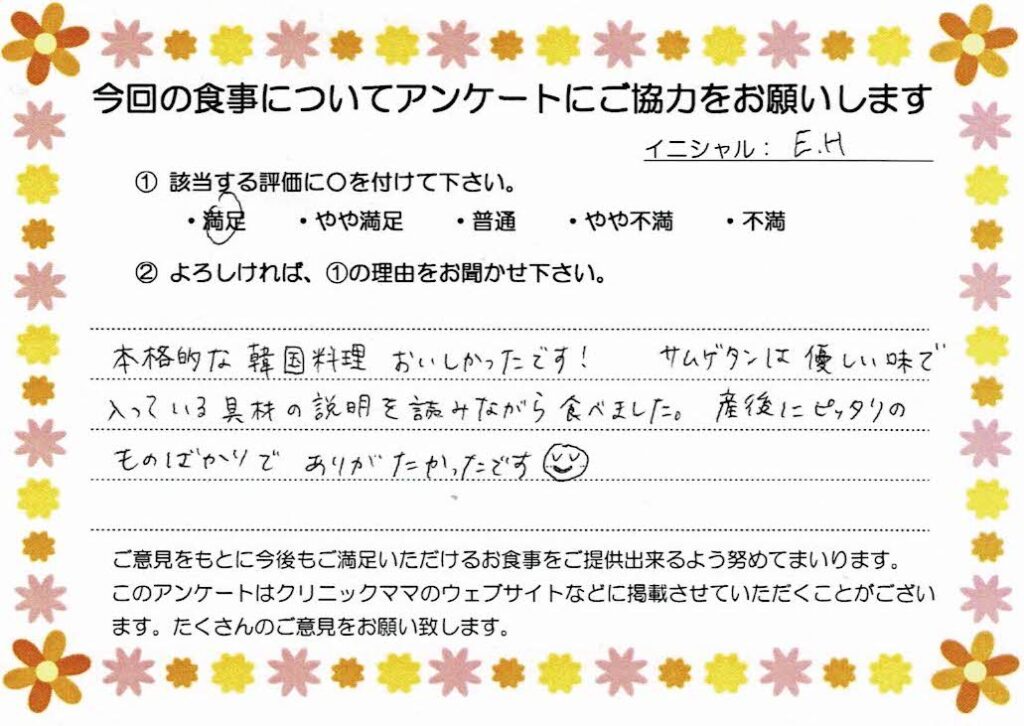 今回の食事についてアンケートにご協力をお願いします
イニシャル： E.H
① 該当する評価に〇を付けて下さい。
・満足 ・やや満足 ・普通 ・やや不満 ・不満
② よろしければ、①の理由をお聞かせ下さい。
本格的な韓国料理 おいしかったです! サムゲタンは優しい味で
入っている具材の説明を読みながら食べました。 産後にピッタリの
ものばかりで ありがたかったです
ご意見をもとに今後もご満足いただけるお食事をご提供出来るよう努めてまいります。
このアンケートはクリニックママのウェブサイトなどに掲載させていただくことがござい
ます。たくさんのご意見をお願い致します。